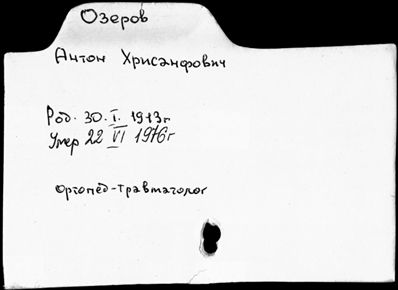 Озеров
Антон Хрисанфович
Род. 30. I. 1913г
Умер 22 VI 1976г
ортопед-травматолог